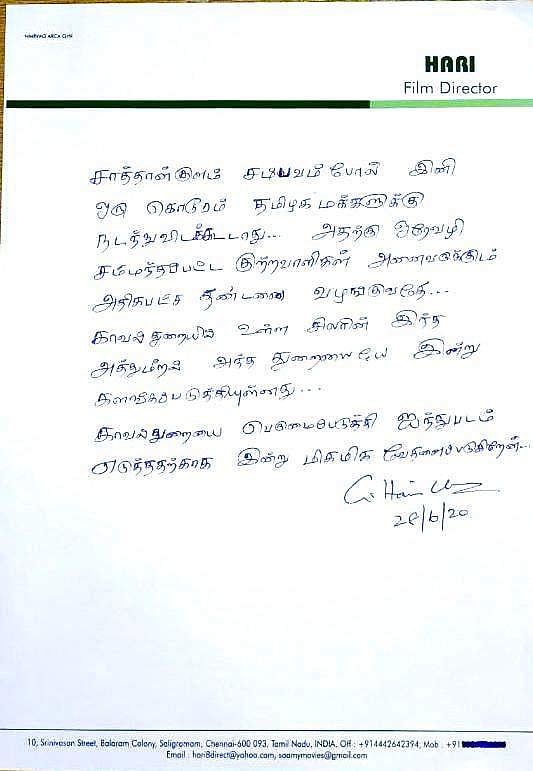 HARI
Film Director
சாத்தான்குளம் சம்பவம் போல் இனி
ஒரு கொடூரம் தமிழக மக்களுக்கு
நடந்துவிடக்கூடாது... அதற்கு ஒரேவழி
சம்மந்தப்பட்ட குற்றவாளிகள் அனைவருக்கும்
அதிகபட்ச தண்டனை வழங்குவதே...
காவல்துறையில் உள்ள சிலரின் இந்த
அத்துமீறல் அந்த துறையையே இன்று
களங்கப்படுத்தியுள்ளது...
காவல்துறையை பெருமைப்படுத்தி ஐந்துபடம்
எடுத்ததற்காக இன்று மிகமிக வேதனைப்படுகிறேன்...
28/6/20
10, Srinivasan Street, Balaram Colony, Saligramam, Chennai-600 093, Tamil Nadu, INDIA. Off : +914442642394, Mob : +91
Email : hari8direct@yahoo.com, saamymovies@gmail.com